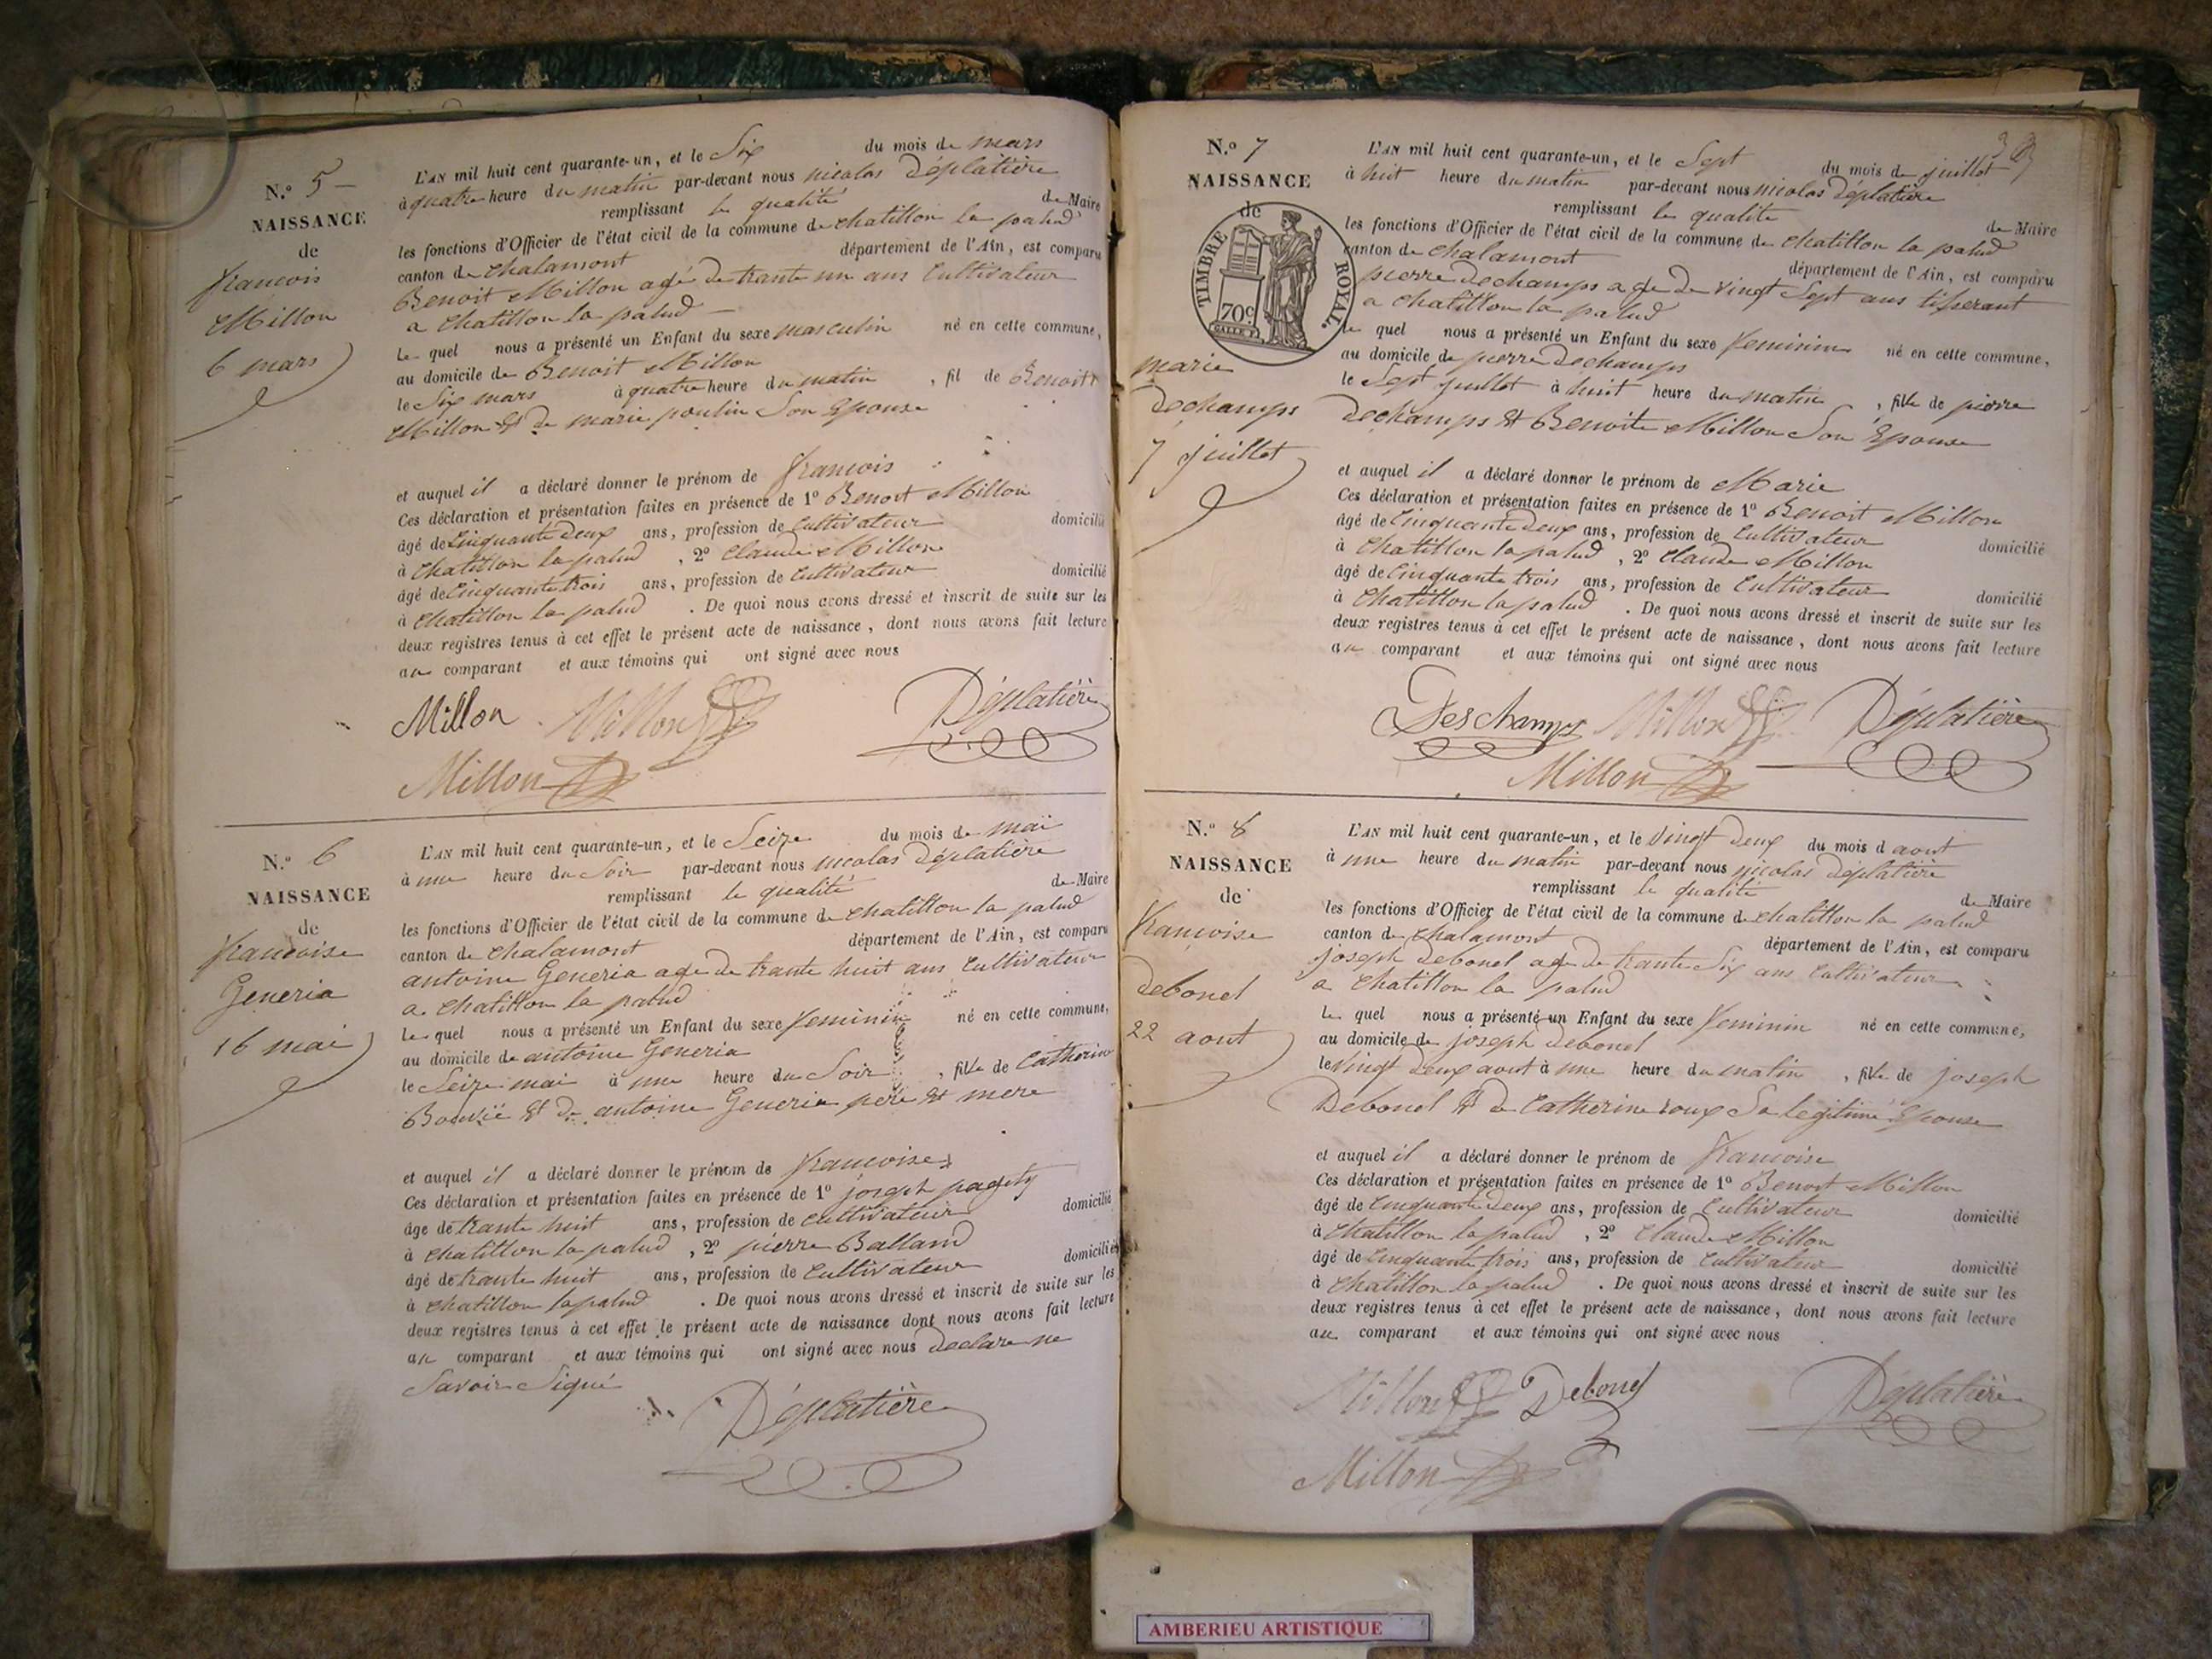 N.º 5
NAISSANCE
de
francois
Millon
6 mars
L'AN mil huit cent quarante-un, et le Six du mois de mars
à quatre heure du matin par-devant nous nicolas Déplatière
remplissant la qualité de Maire
les fonctions d'Officier de l'état civil de la commune de chatillon la palud
canton de chalamont département de l'Ain, est comparu
Benoit Millon agé de trante un ans Cultivateur
a chatillon la palud
Le quel nous a présenté un Enfant du sexe masculin né en cette commune,
au domicile de Benoit Millon
le Six mars à quatre heure du matin, fil de Benoit
Millon & de marie poulin Son Epouse
et auquel il a déclaré donner le prénom de francois
Ces déclaration et présentation faites en présence de 1º Benoit Millon
âgé de Cinquante Deux ans, profession de Cultivateur domicilié
à Chatillon la palud, 2º Claude Millon
âgé de Cinquante trois ans, profession de Cultivateur domicilié
à Chatillon la palud. De quoi nous avons dressé et inscrit de suite sur les
deux registres tenus à cet effet le présent acte de naissance, dont nous avons fait lecture
au comparant et aux témoins qui ont signé avec nous
Millon Millon Déplatière
Millon
N.º 6
NAISSANCE
de
francoise
Generia
16 mai
L'AN mil huit cent quarante-un, et le Seize du mois de mai
à une heure du Soir par-devant nous nicolas Déplatière
remplissant la qualité de Maire
les fonctions d'Officier de l'état civil de la commune de chatillon la palud
canton de chalamont département de l'Ain, est comparu
antoine Generia age de trante huit ans Cultivateur
a chatillon la palud
Le quel nous a présenté un Enfant du sexe feminin né en cette commune,
au domicile de antoine Generia
le Seize mai à une heure du Soir, fille de Catherine
Bouvié & de antoine Generia pere & mere
et auquel il a déclaré donner le prénom de francoise
Ces déclaration et présentation faites en présence de 1º joseph
âge de trante huit ans, profession de cultivateur domicilié
à chatillon la palud, 2º pierre Balland
âgé de trante huit ans, profession de Cultivateur domicilié
à chatillon la palud. De quoi nous avons dressé et inscrit de suite sur les
deux registres tenus à cet effet le présent acte de naissance dont nous avons fait lecture
au comparant et aux témoins qui ont signé avec nous Declare ne
Savoir Signé
Déplatière
N.º 7
NAISSANCE
de
TIMBRE ROYAL.
70c
marie
Dechamps
7 juillet
L'AN mil huit cent quarante-un, et le Sept du mois de juillet
à huit heure du matin par-devant nous nicolas Déplatière
remplissant la qualite de Maire
les fonctions d'Officier de l'état civil de la commune de Chatillon la palud
canton de Chalamont département de l'Ain, est comparu
pierre Dechamps age de vingt Sept ans tisserant
a Chatillon la palud
le quel nous a présenté un Enfant du sexe feminin né en cette commune,
au domicile de pierre Dechamps
le Sept juillet à huit heure du matin, fille de pierre
Dechamps & Benoite Millon Son Epouse
et auquel il a déclaré donner le prénom de Marie
Ces déclaration et présentation faites en présence de 1º Benoit Millon
âgé de Cinquante Deux ans, profession de Cultivateur domicilié
à Chatillon la palud, 2º Claude Millon
âgé de Cinquante trois ans, profession de Cultivateur domicilié
à Chatillon la palud. De quoi nous avons dressé et inscrit de suite sur les
deux registres tenus à cet effet le présent acte de naissance, dont nous avons fait lecture
au comparant et aux témoins qui ont signé avec nous
Deschamps Millon Déplatière
Millon
N.º 8
NAISSANCE
de
francoise
Debonel
22 aout
L'AN mil huit cent quarante-un, et le Vingt Deux du mois d aout
à une heure du matin par-devant nous nicolas Déplatière
remplissant la qualité de Maire
les fonctions d'Officier de l'état civil de la commune de chatillon la palud
canton de chalamont département de l'Ain, est comparu
joseph Debonel age de trante Six ans Cultivateur
a Chatillon la palud
Le quel nous a présenté un Enfant du sexe feminin né en cette commune,
au domicile de joseph Debonel
le Vingt Deux aout à une heure du matin, fille de joseph
Debonel & de Catherine roux Sa legitime Epouse
et auquel il a déclaré donner le prénom de francoise
Ces déclaration et présentation faites en présence de 1º Benoit Millon
âgé de Cinquante Deux ans, profession de Cultivateur domicilié
à Chatillon la palud, 2º Claude Millon
âgé de Cinquante trois ans, profession de Cultivateur domicilié
à Chatillon la palud. De quoi nous avons dressé et inscrit de suite sur les
deux registres tenus à cet effet le présent acte de naissance, dont nous avons fait lecture
au comparant et aux témoins qui ont signé avec nous
Millon Debonel Déplatière
Millon
AMBERIEU ARTISTIQUE